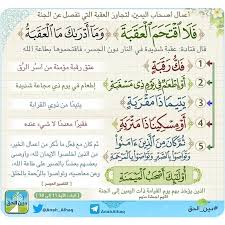 أعمال أصحاب اليمين، لتجاوز العقبة التي تفصل عن الجنة
فَلَا اقْتَحَمَ الْعَقَبَةَ وَمَا أَدْرَاكَ مَا الْعَقَبَةُ
قال قتادة: عقبة شديدة في النار دون الجسر، فاقتحموها بطاعة الله
1 فَكُّ رَقَبَةٍ
عتق رقبة مؤمنة من أسر الرق
2 أَوْ إِطْعَامٌ فِي يَوْمٍ ذِي مَسْغَبَةٍ
إطعام في يوم ذي مجاعة شديدة
3 يَتِيمًا ذَا مَقْرَبَةٍ
يتيمًا من ذوي القرابة
4 أَوْ مِسْكِينًا ذَا مَتْرَبَةٍ
فقيرًا معدمًا لا شيء عنده
5 ثُمَّ كَانَ مِنَ الَّذِينَ آمَنُوا
وَتَوَاصَوْا بِالصَّبْرِ وَتَوَاصَوْا بِالْمَرْحَمَةِ
ثم كان مع فعل ما ذُكر من أعمال الخير،
من الذين أخلصوا الإيمان لله، وأوصى
بعضهم بعضًا بالصبر على طاعة الله
الذين يؤخذ بهم يوم القيامة ذات اليمين إلى الجنة
@Anah_Alhaq
#دين_الحق